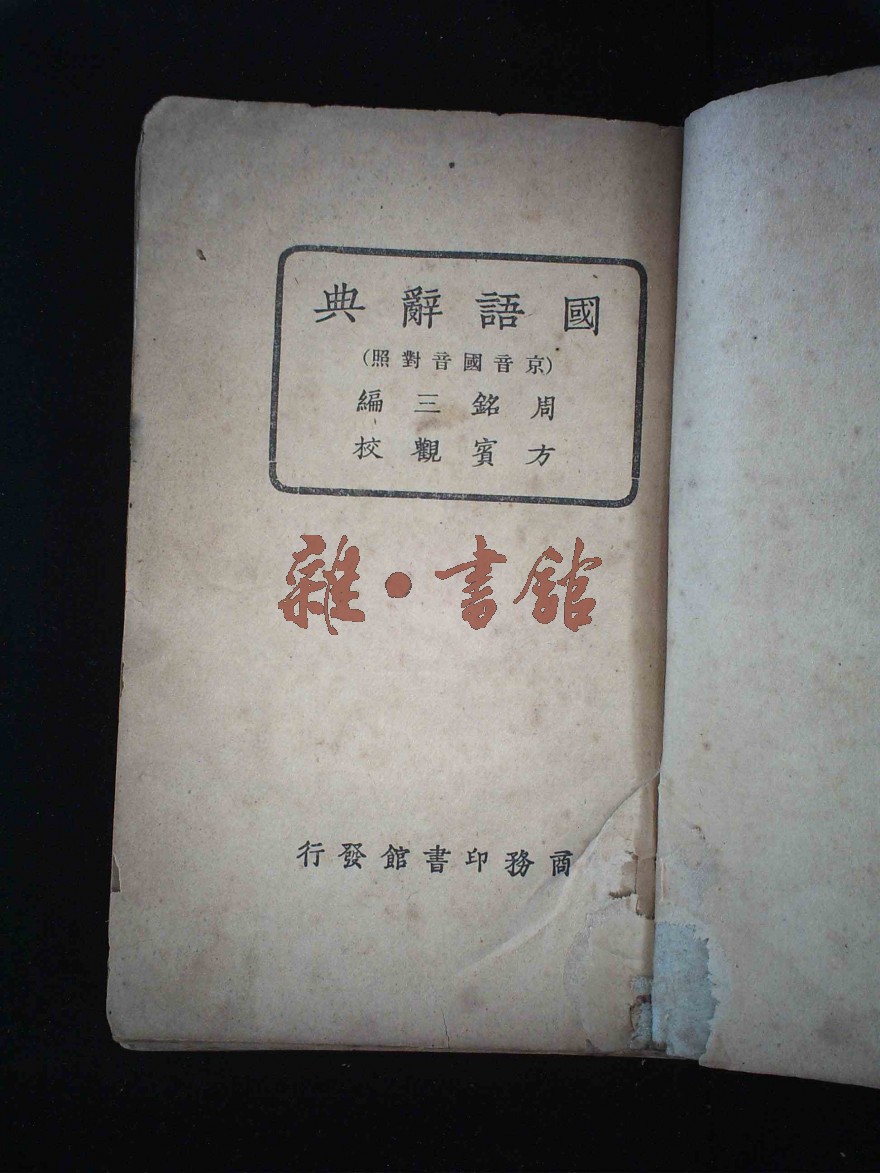 國語辭典
(京音國音對照)
周銘三編
方賓觀校
雜·書館
商務印書館發行